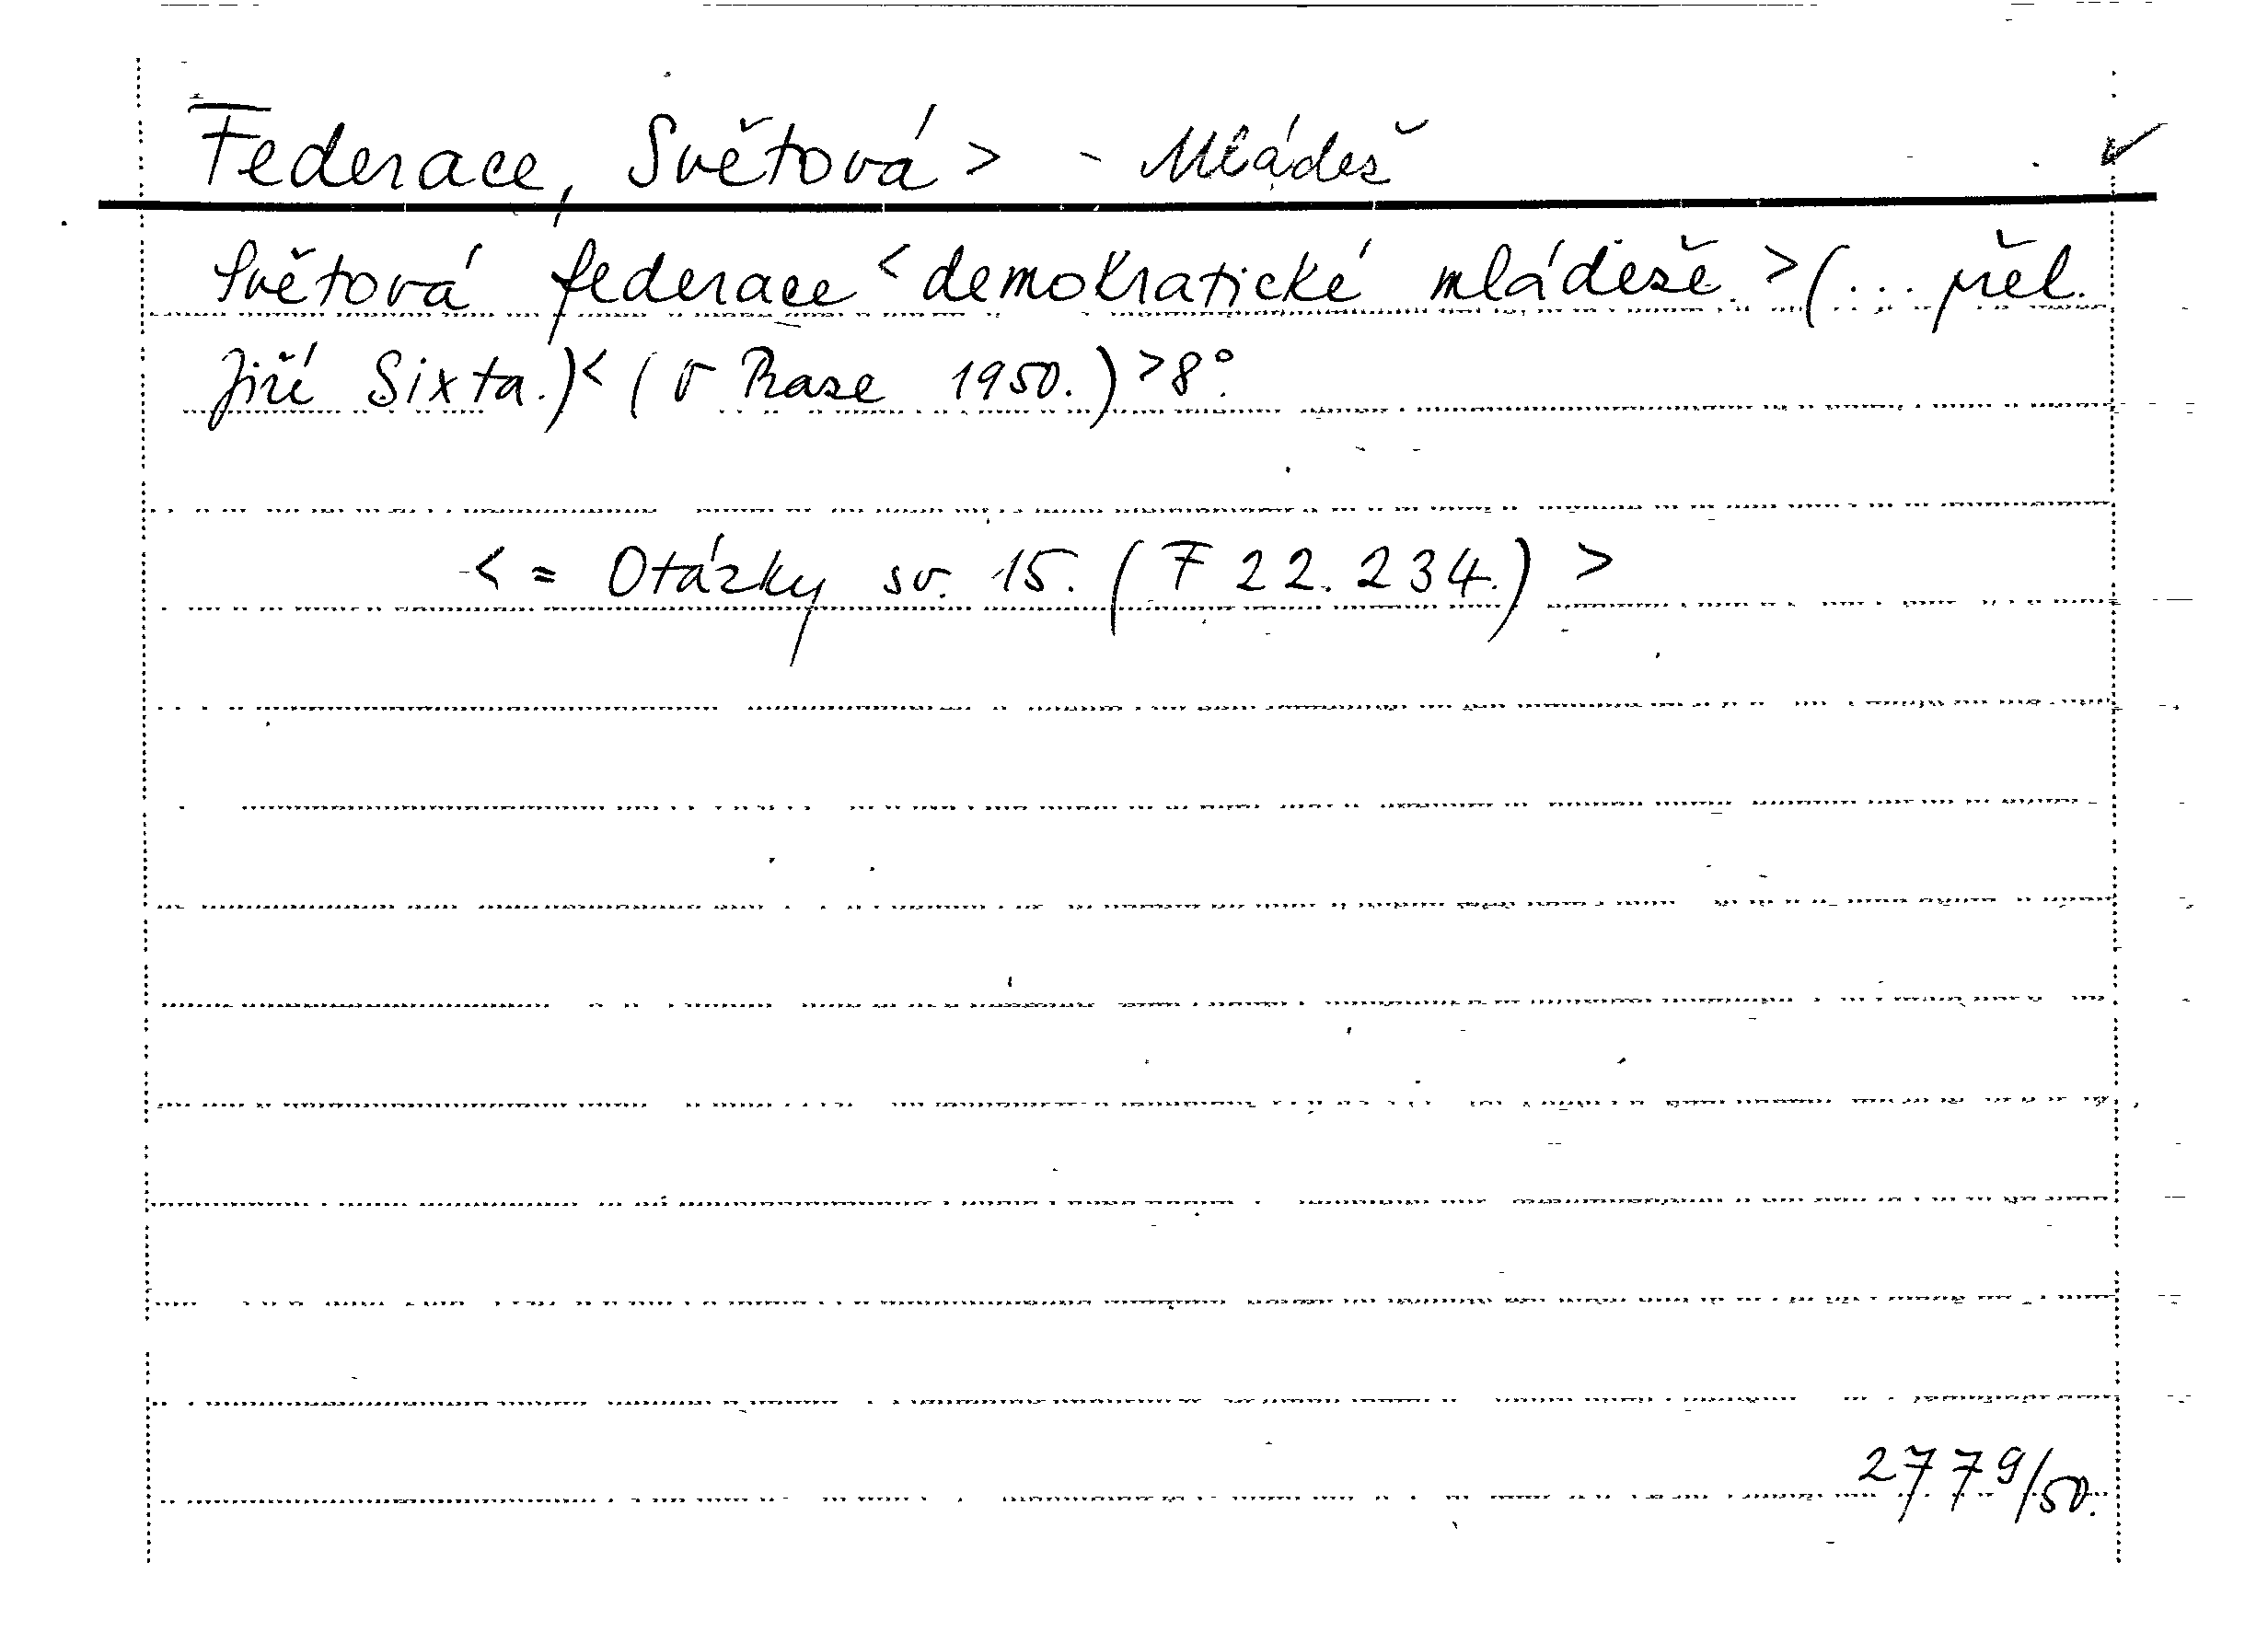 Federace, Světová > - Mládež
Světová federace < demokratické mládeže. > (... přel.
Jiří Sixta.) < (V Praze 1950.) > 8°.
< = Otázky sv. 15. (F 22.234.) >
2779/50.